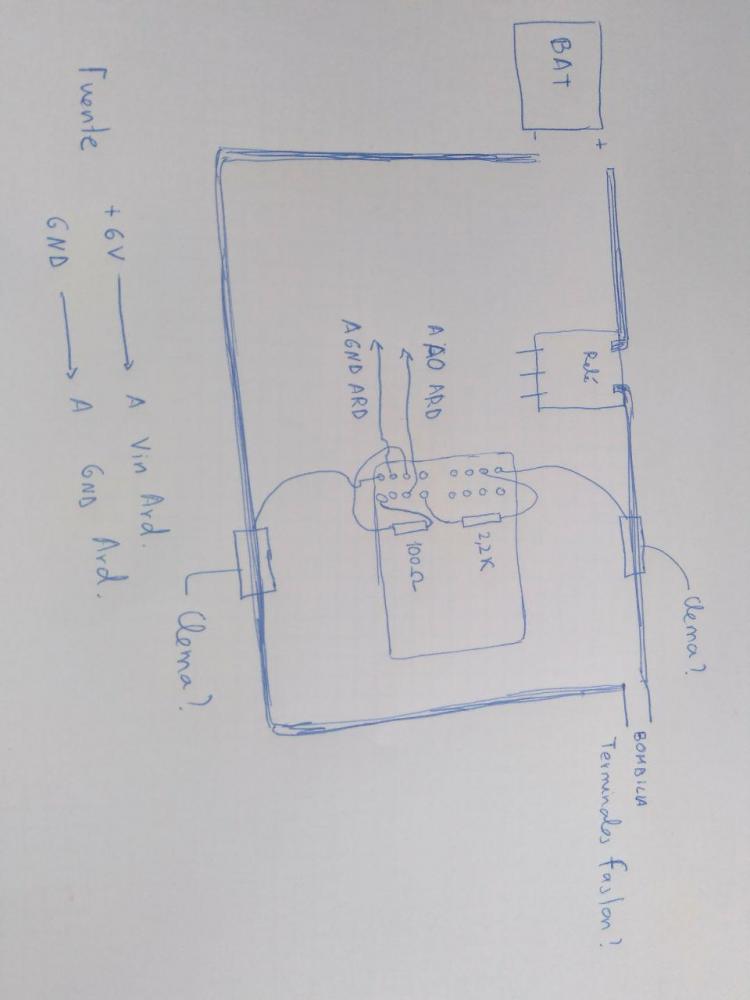 BAT
- +
Relé
A A0 ARD
A GND ARD
2,2K
100Ω
Clema?
Clema?
BOMBILLA
Terminales Faston?
Fuente
+6V → A Vin Ard.
GND → A GND Ard.